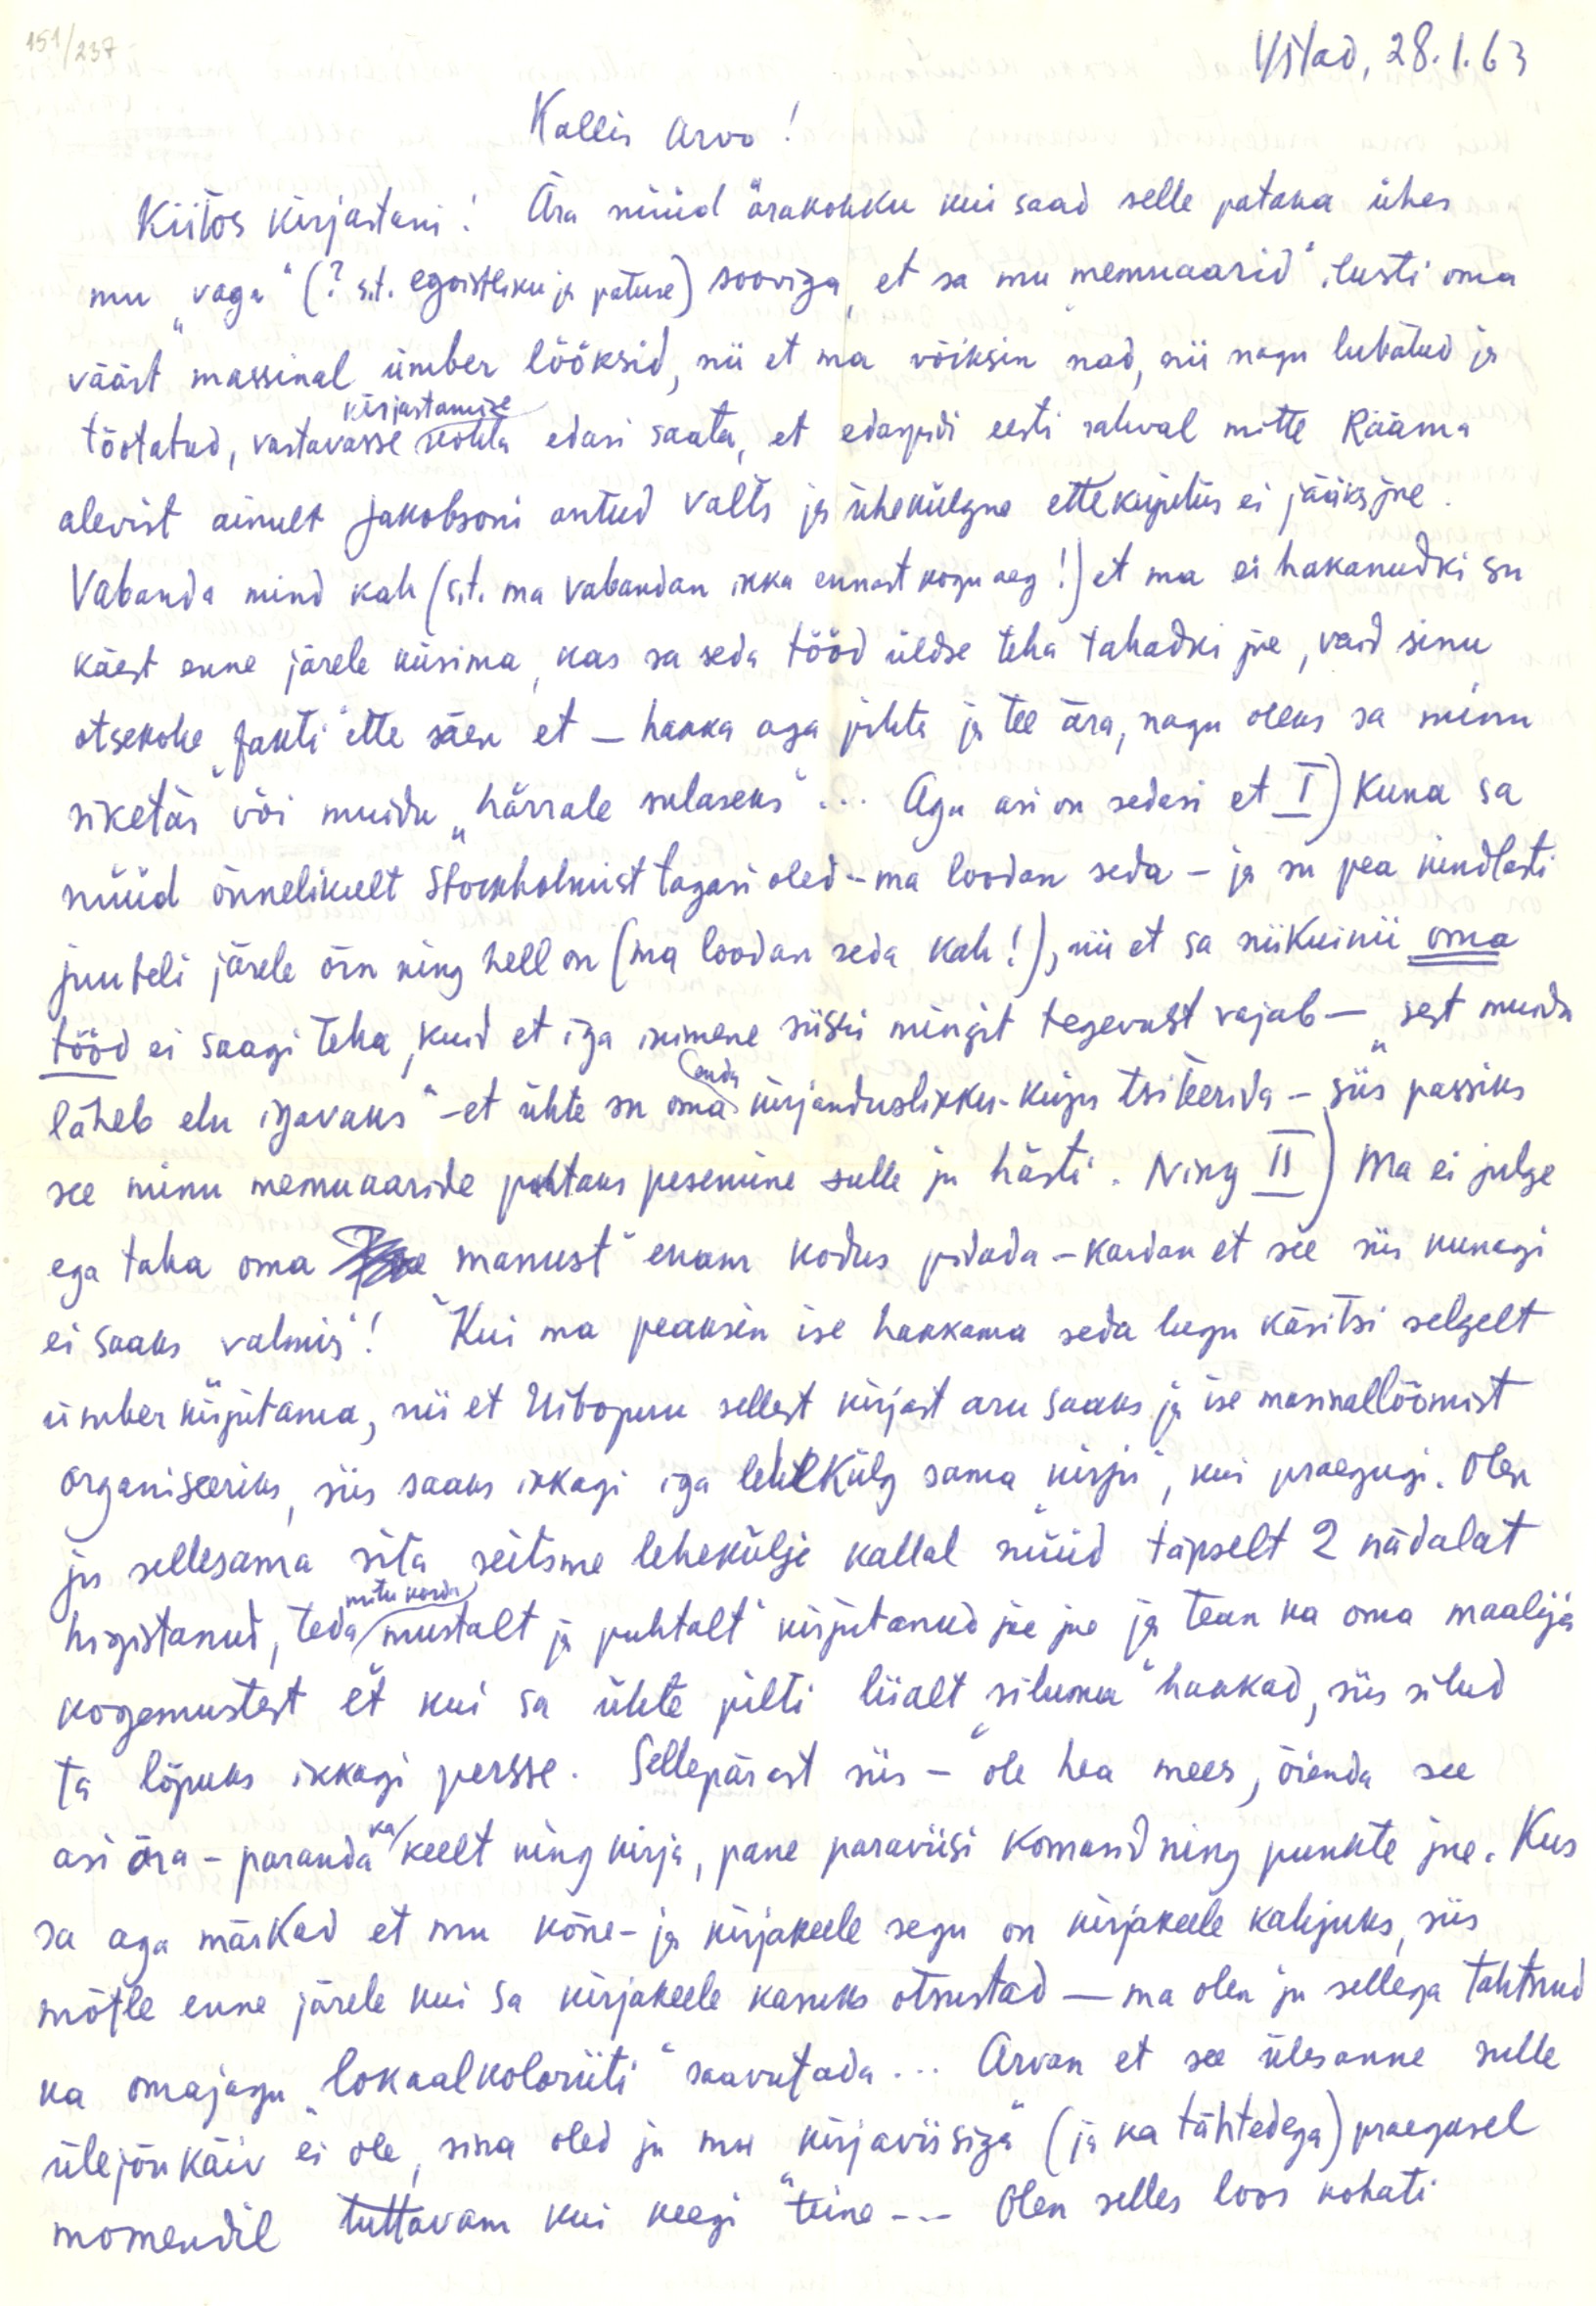 151/237
Ystad, 28.1.63
Kallis Arvo!
Kiitos kirjastani! Ära nüüd ärakohku kui saad selle pataka ühes
mu „vaga“ (? s.t. egoistliku ja patuse) sooviga, et sa mu „memuaarid“ ilusti oma
väärt massinal ümber lööksid, nii et ma võiksin nad, nii nagu lubatud ja
tõotatud, vastavasse kirjastamise kohta edasi saata, et edaspidi eesti rahval mitte Rääma
alevist ainult Jakobsoni antud valts ja ühekülgne ettekujutus ei jääks jne.
Vabanda mind kah (s.t. ma vabandan ikka ennast kogu aeg!) et ma ei hakanudki su
käest enne järele küsima, kas sa seda tööd üldse teha tahadki jne, vaid sinu
otsekohe „fakti“ ette säen et — hakka aga pihta ja tee ära, nagu oleks sa minu
siketär või muidu „härrale sulaseks“... Aga asi on sedasi et I) Kuna sa
nüüd õnnelikult Stockholmist tagasi oled – ma loodan seda – ja su pea kindlasti
juubeli järele õrn ning hell on (ma loodan seda kah!), nii et sa niikuinii oma
tööd ei saagi teha, kuid et iga inimene siiski mingit tegevust vajab — „sest muidu
läheb elu igavaks“ – et ühte su oma enda kirjanduslikku kuju tsiteerida – siis passiks
see minu memuaaride puhtaks pesemine sulle ju hästi. Ning II) Ma ei julge
ega taha oma „manust“ enam kodus pidada – kardan et see siis kunagi
ei saaks „valmis“! Kui ma peaksin ise hakkama seda lugu käsitsi selgelt
ümber kirjutama, nii et Uibopuu sellest kirjast aru saaks ja ise masinallöömist
organiseeriks, siis saaks ikkagi iga lehekülg sama „kirju“, kui praegugi. Olen
ju sellesama sita seitsme lehekülje kallal nüüd täpselt 2 nädalat
higistanud, teda mitu korda „mustalt ja puhtalt“ kirjutanud jne jne ja tean ka oma maalija
kogemustest et kui sa ühte pilti liialt „siluma“ hakkad, siis silud
ta lõpuks ikkagi persse. Sellepärast siis – ole hea mees, õienda see
asi ära – paranda ka keelt ning kirja, pane paraviisi komasid ning punkte jne. Kus
sa aga märkad et mu kõne- ja kirjakeele segu on kirjakeele kahjuks, siis
mõtle enne järele kui sa kirjakeele kasuks otsustad — ma olen ju sellega tahtnud
ka omajagu „lokaalkoloriiti“ saavutada... Arvan et see ülesanne sulle
ülejõukäiv ei ole, sina oled ju mu „kirjaviisiga“ (ja ka tähtedega) praegusel
momendil tuttavam kui keegi teine --- Olen selles loos kohati